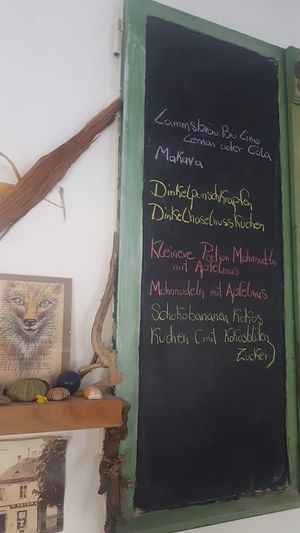 Lammsbräu Bio Limo
Lemon oder Cola
Makava
Dinkelpunschkrapfen
Dinkelhaselnusskuchen
Kleinere Portion Mohnnudeln
mit Apfelmus
Mohnnudeln mit Apfelmus
Schokobananen Kokos
Kuchen (mit Kokosblüten
Zucker)